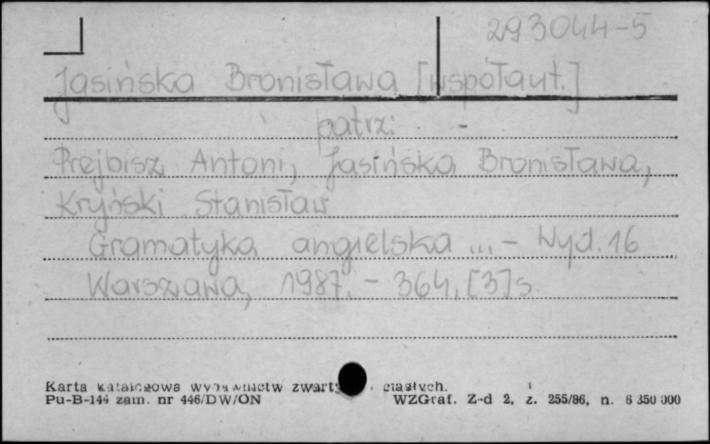 293044-5
Jasińska Bronisława [współaut.]
patrz: -
Prejbisz Antoni, Jasińska Bronisława,
Kryński Stanisław
Gramatyka angielska ... - Wyd. 16
Warszawa, 1987. - 364, [3] s
Karta katalogowa wydawnictw zwartych ciągłych.
Pu-B-144 zam. nr 446/DW/ON WZGraf. Z-d 2, z. 255/86, n. 6 350 000